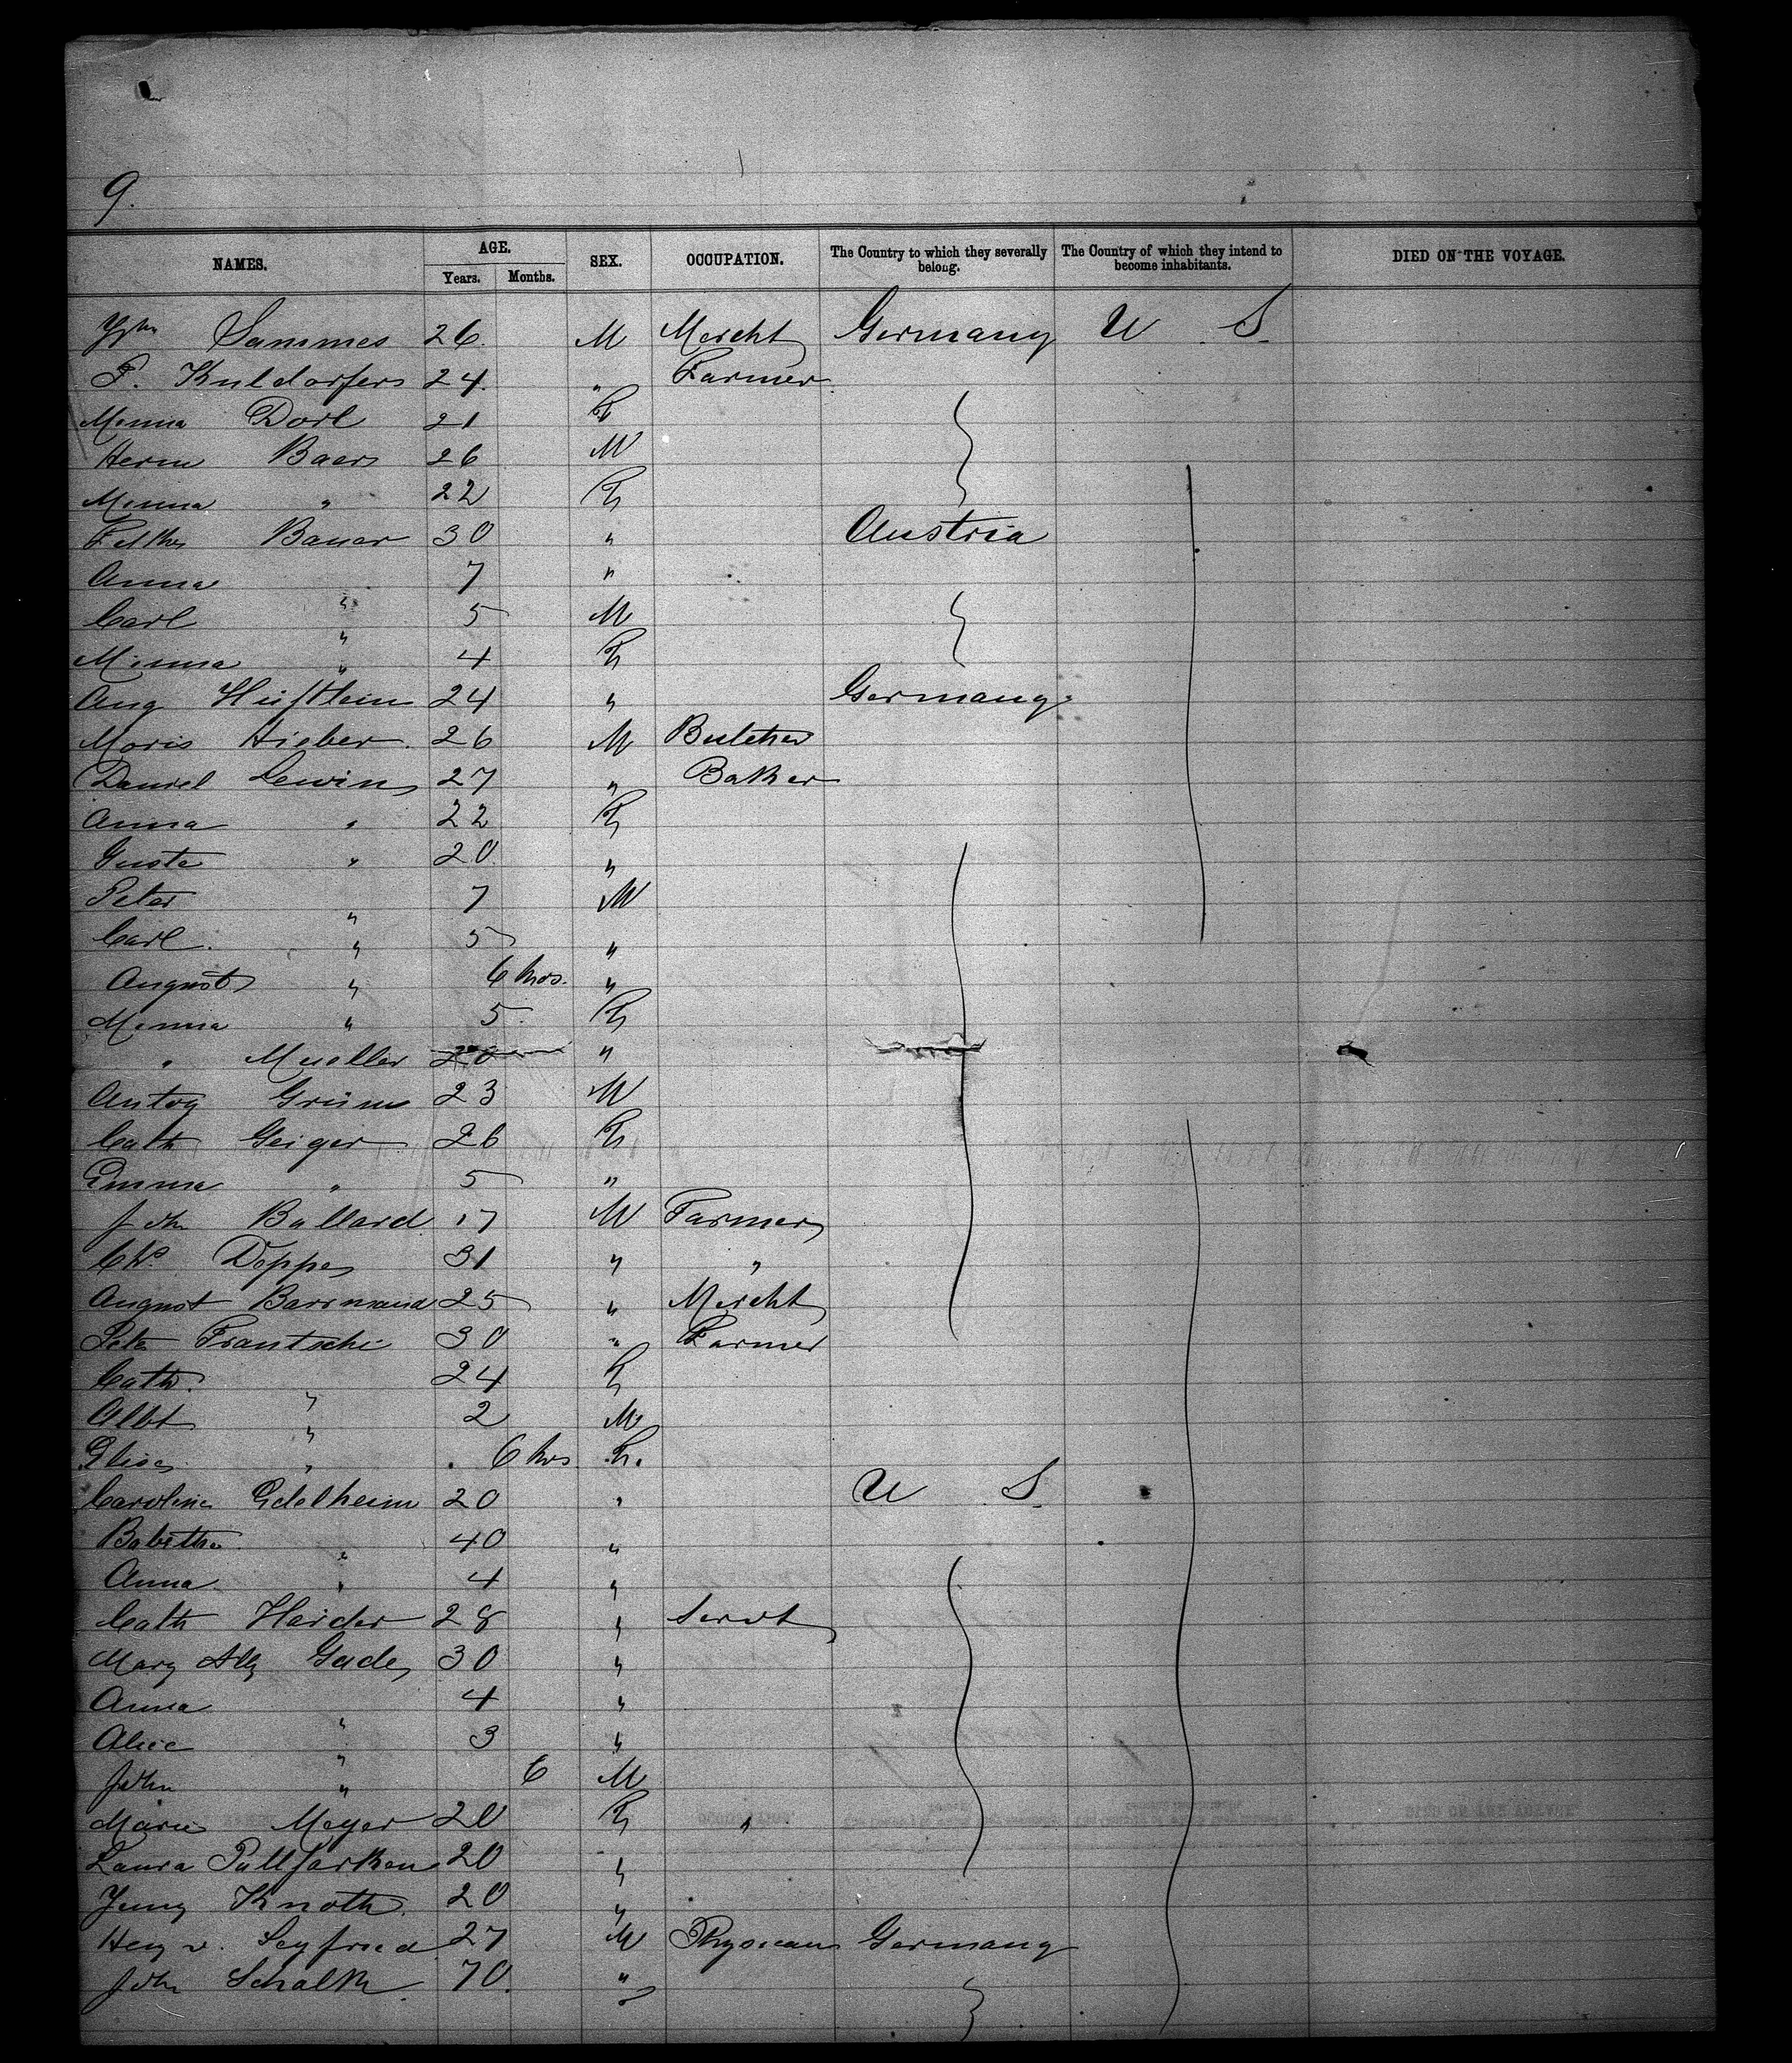 9.
NAMES. AGE. Years. Months. SEX. OCCUPATION. The Country to which they severally belong. The Country of which they intend to become inhabitants. DIED ON THE VOYAGE.
Sammes 26 M Mercht Germany U S
F. Kuldorfer 24 " Farmer
Minna Dorl 21 F
Herm Baer 26 M
Minna " 22 F
Bauer 30 " Austria
Anna " 7 "
Carl " 5 M
Minna " 4 F
Aug 24 " Germany
Moris Hieber 26 M Butcher
Daniel Lewin 27 " Baker
Anna " 22 F
Guste " 20 "
Peter " 7 M
Carl " 5 "
August " 6 mos. "
Minna " 5 F
" Mueller 20 "
Anton Grüm 23 M
Cath Geiger 26 F
Emma " 5 "
John Ballard 17 M Farmer
Chs Doppe 31 " "
August Barrmand 25 " Mercht
Frautschi 30 " Farmer
Cath. " 24 F
Albt " 2 M
Elise " 6 mos F.
Caroline Edelheim 20 " U S
Babetha " 40 "
Anna " 4 "
Cath Harder 28 " Servt
Mary Gade 30 "
Anna " 4 "
Alice " 3 "
John " 6 M
Marie Meyer 20 F "
Laura 20 "
Jenny Knoth 20 "
Hey v. Seyfried 27 M Physician Germany
John Schalk 70 "